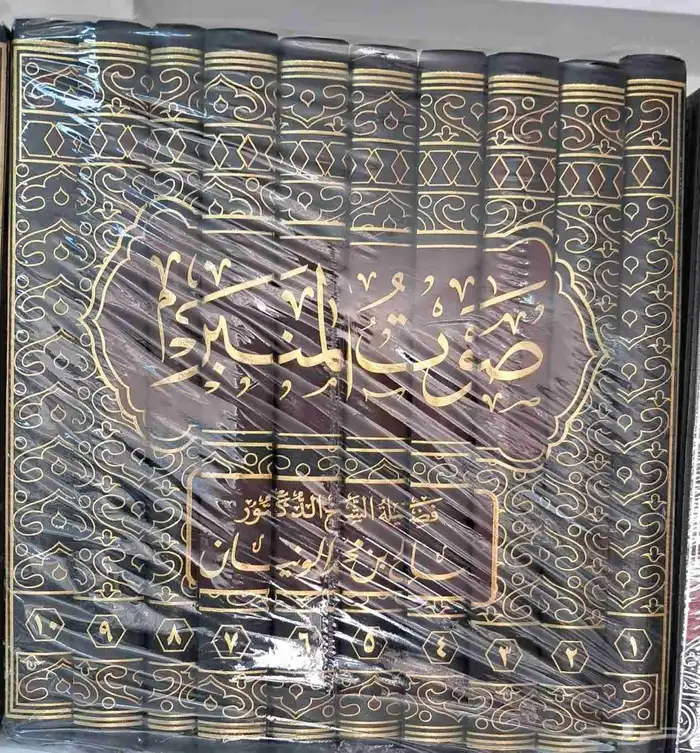 صوت المنبر
فضيلة الشيخ الدكتور
صالح بن محمد الونيان
١ ٢ ٣ ٤ ٥ ٦ ٧ ٨ ٩ ١٠